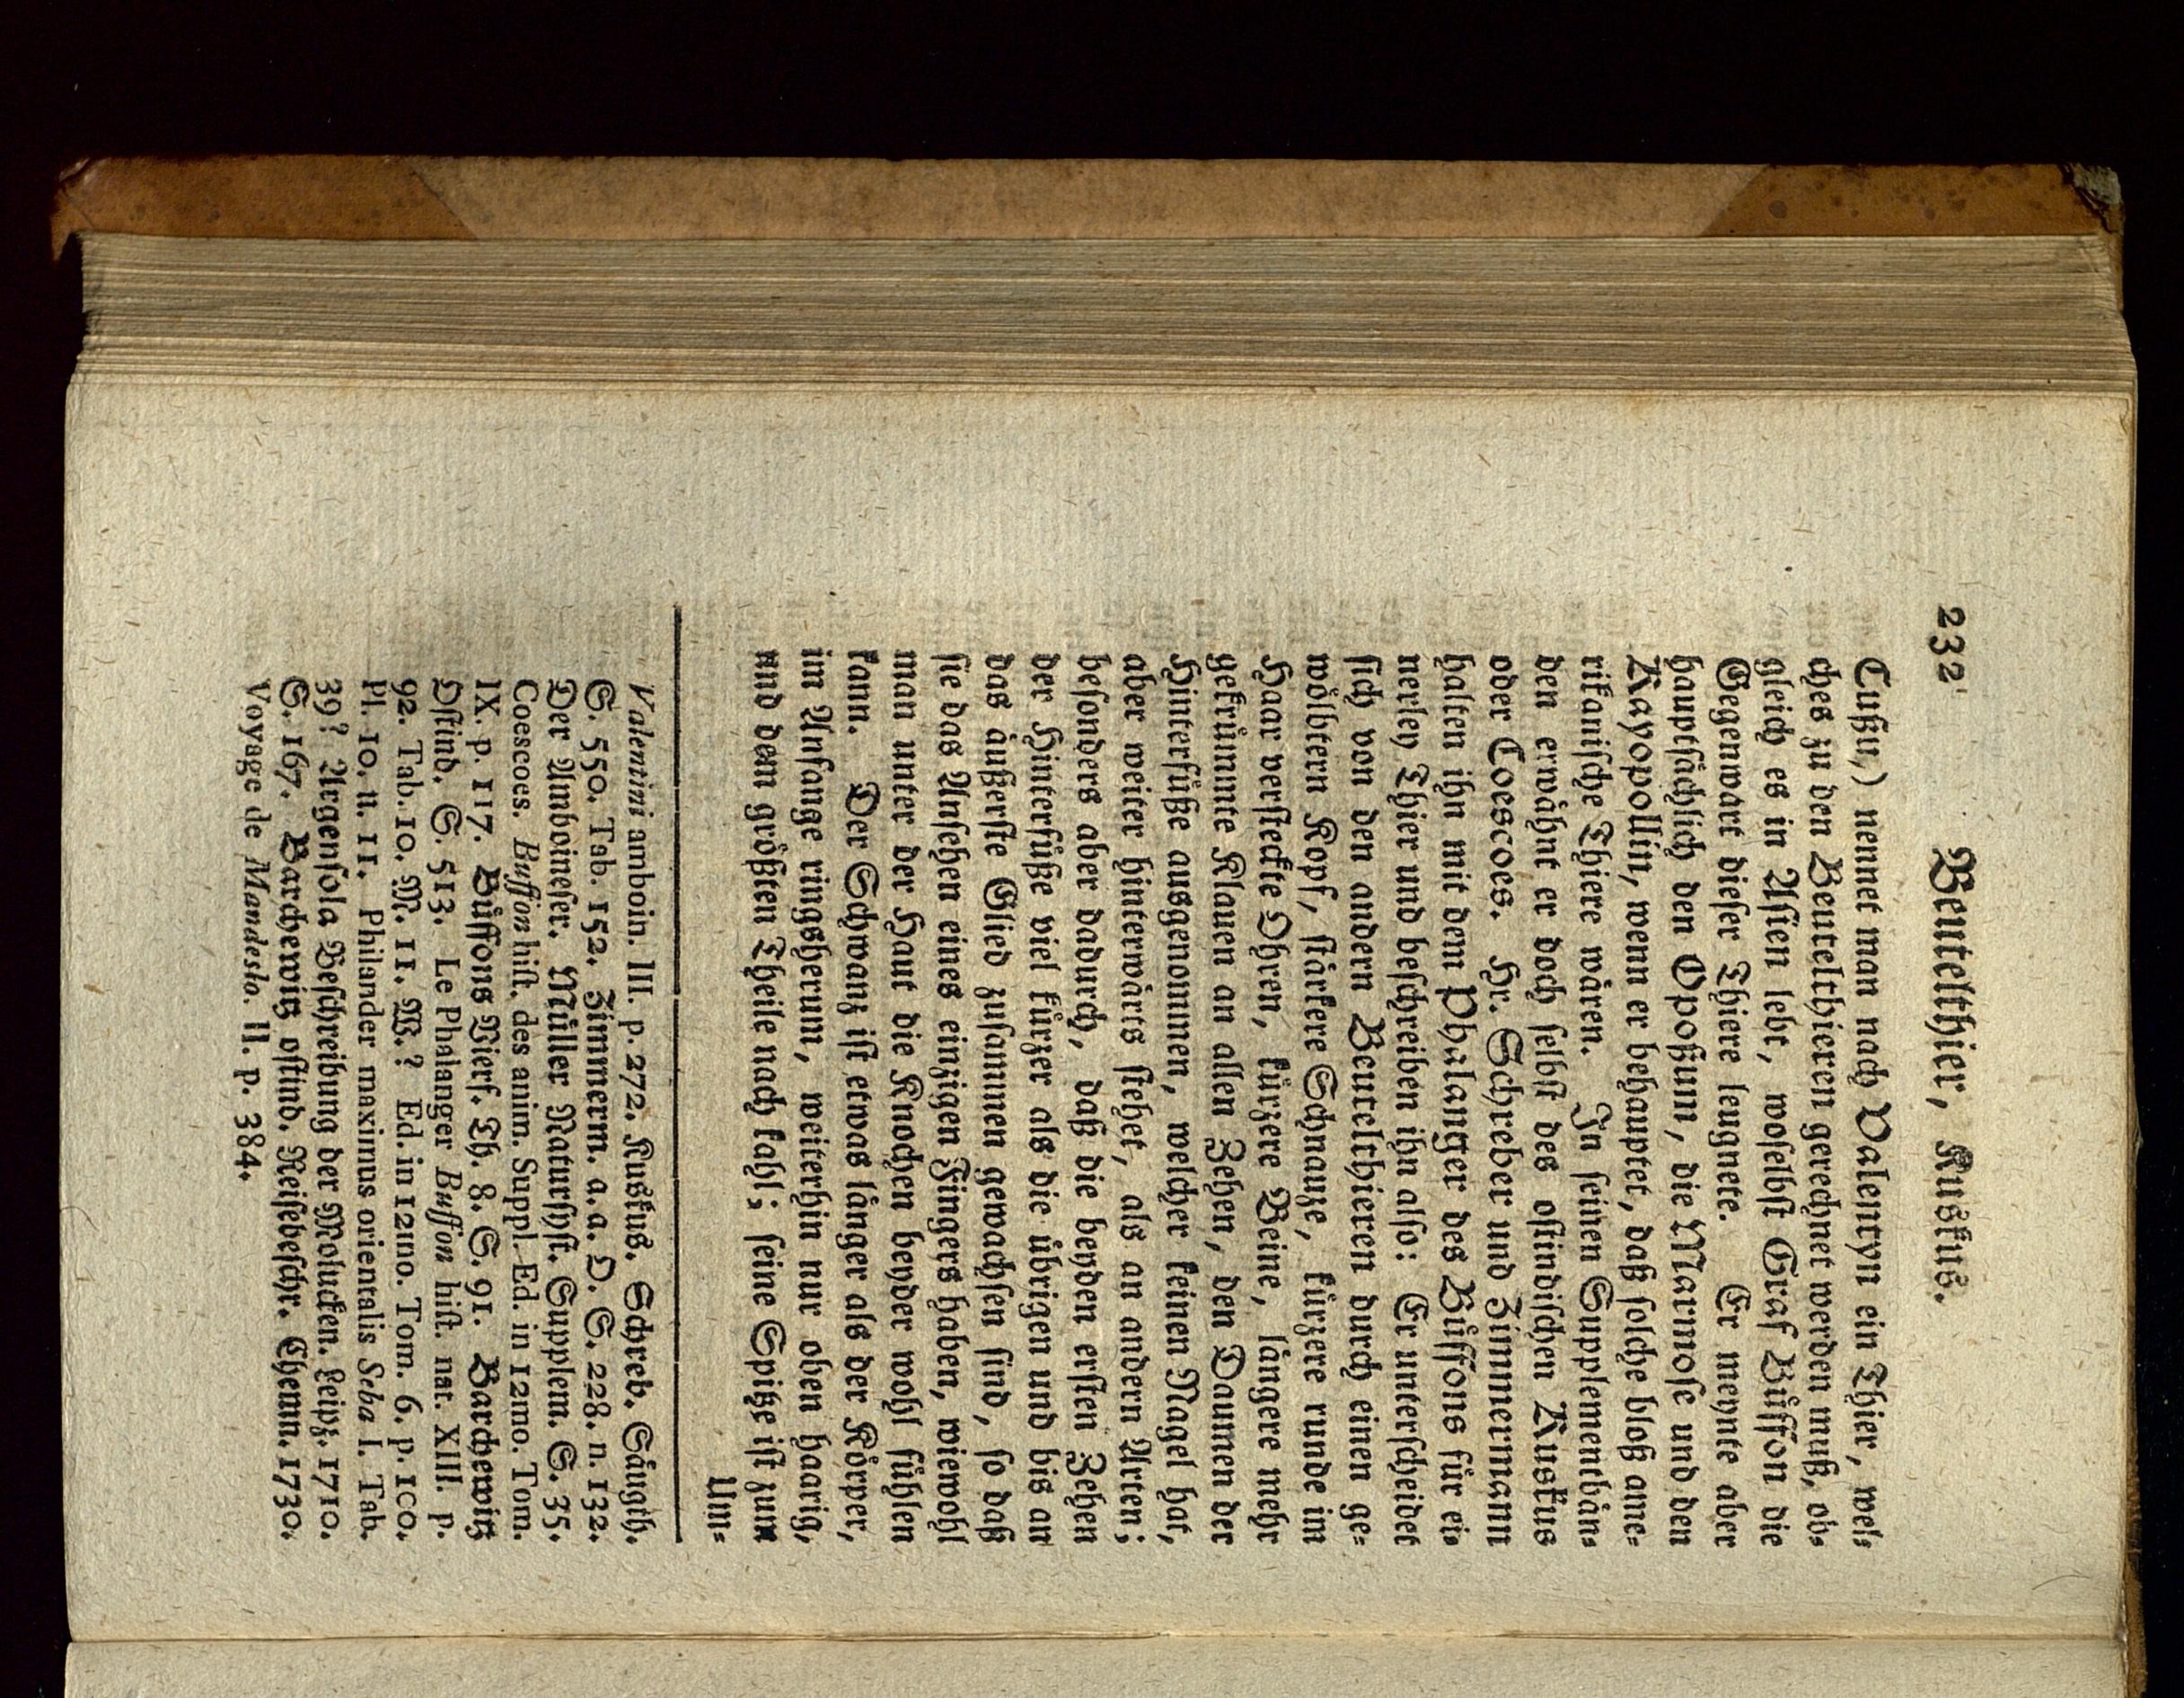 232 Beutelthier, Kuskus.
Cußu,) nennet man nach Valentyn ein Thier, wel-
ches zu den Beutelthieren gerechnet werden muß, ob-
gleich es in Asien lebt, woselbst Graf Büffon die
Gegenwart dieser Thiere leugnete. Er meynte aber
hauptsächlich den Opoßum, die Marmose und den
Kayopollin, wenn er behauptet, daß solche bloß ame-
rikanische Thiere wären. In seinen Supplementbän-
den erwähnt er doch selbst des ostindischen Kuskus
oder Coescoes. Hr. Schreber und Zimmermann
halten ihn mit dem Phalanger des Büffons für ei-
nerley Thier und beschreiben ihn also: Er unterscheidet
sich von den andern Beutelthieren durch einen ge-
wölbtern Kopf, stärkere Schnauze, kürzere runde im
Haar versteckte Ohren, kürzere Beine, längere mehr
gekrümmte Klauen an allen Zehen, den Daumen der
Hinterfüße ausgenommen, welcher keinen Nagel hat,
aber weiter hinterwärts stehet, als an andern Arten;
besonders aber dadurch, daß die beyden ersten Zehen
der Hinterfüße viel kürzer als die übrigen und bis an
das äußerste Glied zusammen gewachsen sind, so daß
sie das Ansehen eines einzigen Fingers haben, wiewohl
man unter der Haut die Knochen beyder wohl fühlen
kann. Der Schwanz ist etwas länger als der Körper,
im Anfange ringsherum, weiterhin nur oben haarig,
und dem größten Theile nach kahl; seine Spitze ist zum
Um-
Valentini amboin. III. p. 272. Kuskus. Schreb. Säugth.
S. 550. Tab. 152. Zimmerm. a. a. O. S. 228. n. 132.
Der Amboineser. Müller Natursyst. Supplem. S. 35.
Coescoes. Buffon hist. des anim. Suppl. Ed. in 12mo. Tom.
IX. p. 117. Büffons Vierf. Th. 8. S. 91. Barchewitz
Ostind. S. 513. Le Phalanger Buffon hist. nat. XIII. p.
92. Tab. 10. M. 11. W.? Ed. in 12mo. Tom. 6. p. 100.
Pl. 10. u. 11. Philander maximus orientalis Seba I. Tab.
39? Argensola Beschreibung der Molucken. Leipz. 1710.
S. 167. Barchewitz ostind. Reisebeschr. Chemn. 1730.
Voyage de Mandeslo. II. p. 384.